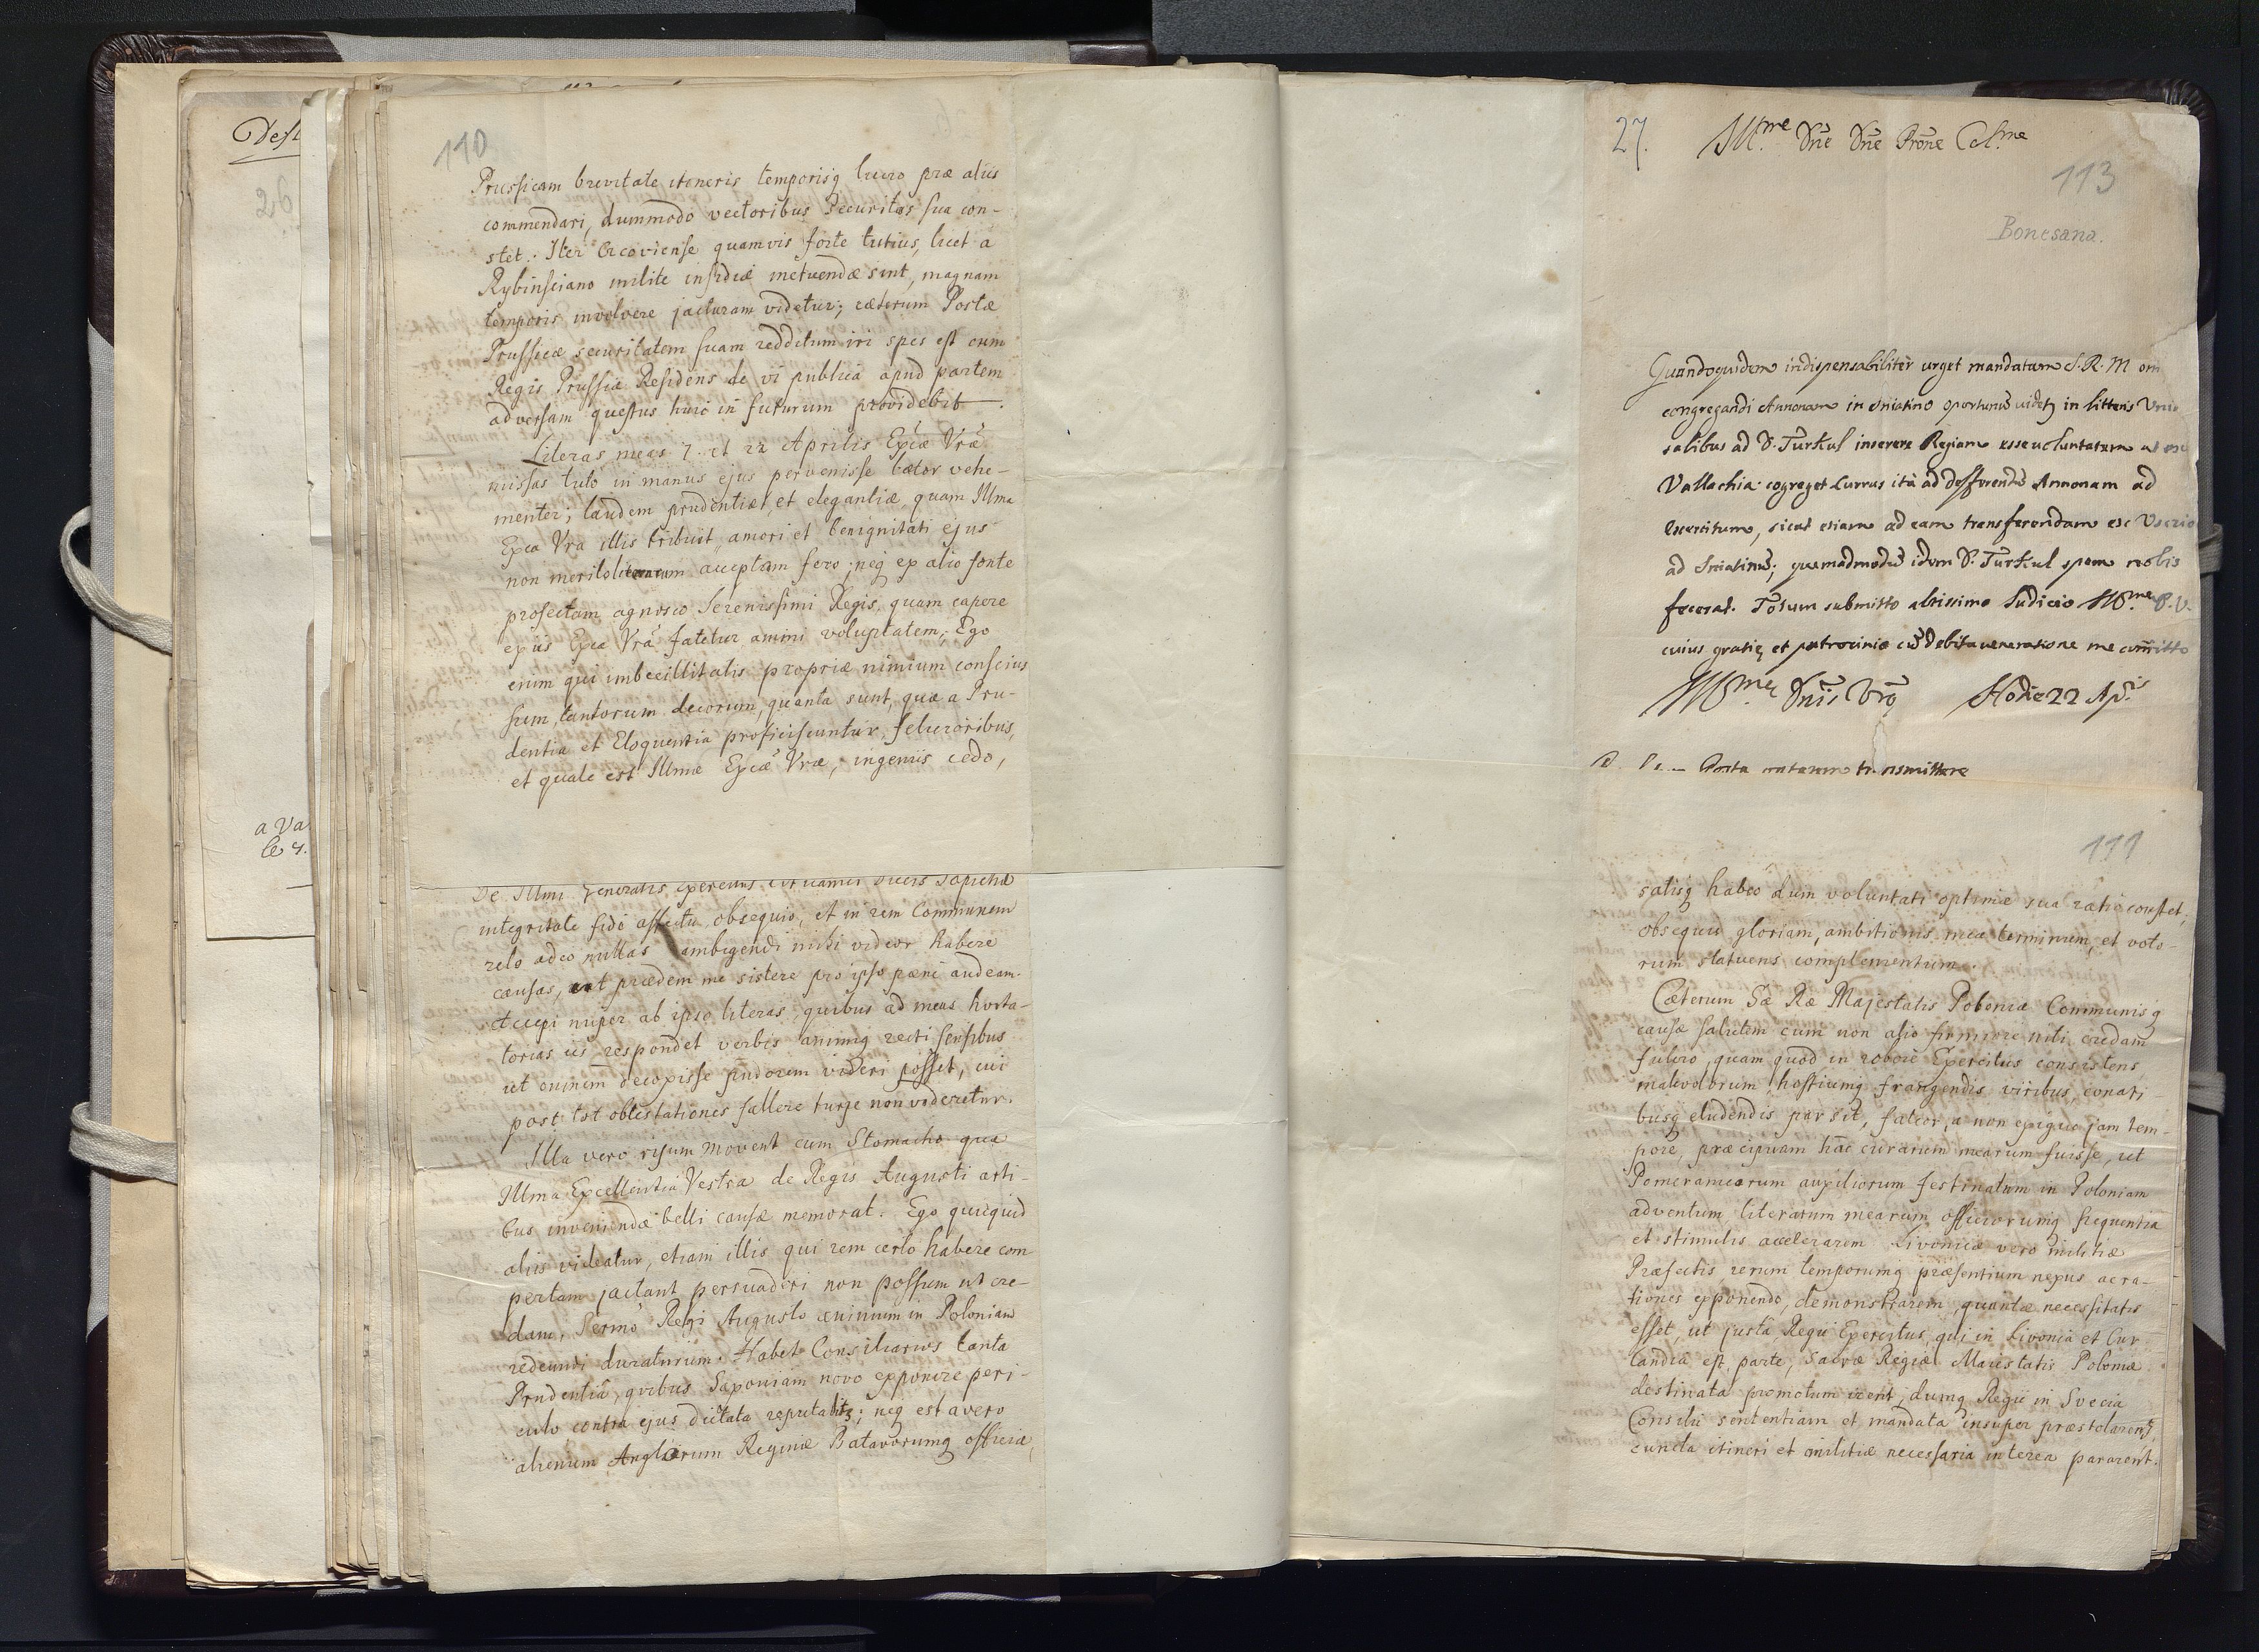 Desi
26
a Va
le 4.
110
Prussicam brevitate itineris temporisq lucro præ aliis
commendari, dummodo vectoribus Securitas sua con-
stet. Iter Cracoviense quamvis forte tutius, licet a
Rybinsciano milite insidiæ metuendæ sint, magnam
temporis involvere jacturam videtur; cæterum Postæ
Prussicæ securitatem suam redditum iri spes est cum
Regis Prussiæ Residens de vi publica apud partem
adversam questus huic in futurum providebit.
Literas meas 7. et 22 Aprilis Exæ Vræ
missas tuto in manus ejus pervenisse lætor vehe-
menter; laudem prudentiæ, et elegantiæ, quam Illma
Exca Vra illis tribuit, amori et benignitati ejus
non merito acceptam fero; neq ex alio fonte
profectam agnosco Serenissimi Regis, quam capere
ex iis Exca Vra fatetur animi voluptatem; Ego
enim qui imbecillitatis propriæ nimium conscius
sum, tantorum decorum, quanta sunt, quæ a Pru-
dentia et Eloquentia proficiscuntur, felicioribus,
et quale est Illmæ Excæ Vræ, ingeniis cedo,
De Illmi Generalis exercitus Ducis Sapiehæ
integritate fido affectu obsequio, et in rem Communem
zelo adeo nullas ambigendi mihi videor habere
causas, ut prædem me sistere pro ipso pæne audeam.
Accepi nuper ab ipso literas, quibus ad meas horta-
torias iis respondet verbis animiq recti sensibus
ut omnem decoxisse pudorem videri posset, cui
post tot obtestationes fallere turpe non videretur.
Illa vero risum movent cum Stomacho quæ
Illma Excellentia Vestra de Regis Augusti arti-
bus inveniendæ belli causæ memorat. Ego quicquid
aliis videatur, etiam illis qui rem certo habere com
pertam jactant persuaderi non possum ut cre-
dam, Sermo Regi Augusto animum in Poloniam
redeundi duraturum. Habet Consiliarios tanta
Prudentia, quibus Saxoniam novo exponere peri-
culo contra ejus dictata reputabitz; neq est a vero
alienum Anglorum Reginæ Batavorumq officia,
27.
Illme Dne Dne Prone Colme
113
Bonesana.
Quandoquidem indispensabiliter urget mandatum S. R. M om
congregandi Annonam in Sniatino oportunu videtz in litteris Univer
salibus ad D. Turkul inserere Regiam esse voluntatem ut
Vallachia cogreget Currus ita ad defferendu Annonam ad
Exercitum, sicut etiam ad eam transferendam ex Uscrio
ad Sniatinu; quemadmodu idem D. Turkul spem nobis
fecerat. Totum submitto altissimo Iudicio Illme D. V.
cuius gratiæ et patrocinio cu debita veneratione me comitto
Illmæ Dnis Vræ Hodie 22 Apis
transmittere
111
satisq habeo dum voluntati optimæ sua ratio constet,
obsequii gloriam, ambitionis meæ terminum, et voto-
rum statuens complementum.
Cæterum Sæ Ræ Majestatis Poloniæ Communisq
causæ salutem cum non alio firmiore niti credam
fulcro, quam quod in robore Exercitus consistens
malevolorum hostiumq frangendis viribus, conati-
busq eludendis par sit, fateor, a non exiguo jam tem-
pore, præcipuam hanc curarum mearum fuisse, ut
Pomeranicorum auxiliorum festinatum in Poloniam
adventum literarum mearum officiorumq frequentia
et stimulis accelerarem Livonicæ vero militiæ
Præfectis, rerum temporumq præsentium nexus ac ra-
tiones exponendo, demonstrarem, quantæ necessitatis
esset, ut justa Regii Exercitus, qui in Livonia et Cur
landia est, parte, Sacræ Regiæ Majestatis Poloniæ
destinata promotum irent, dumq Regii in Svecia
Consilii sententiam et mandata insuper præstolarent,
cuncta itineri et militiæ necessaria interea pararent.